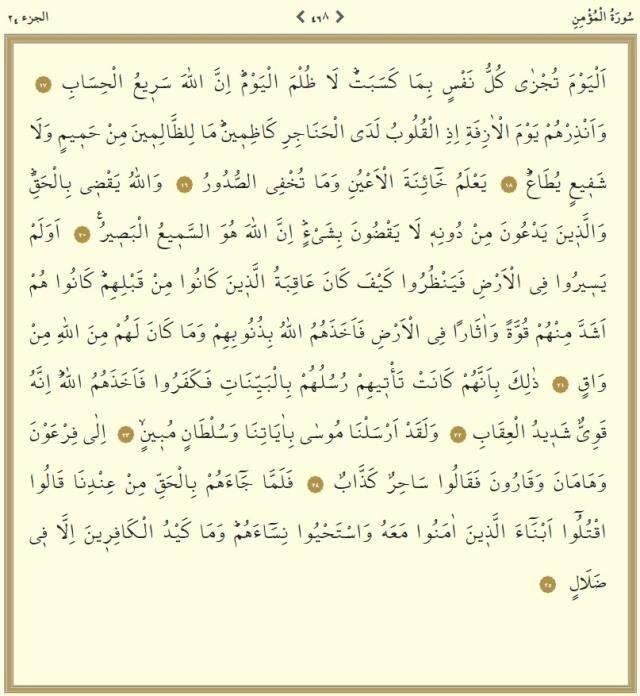 سُورَةُ الْمُؤْمِنِ ❮ ٤٦٨ ❯ الجزء ٢٤
اَلْيَوْمَ تُجْزٰى كُلُّ نَفْسٍ بِمَا كَسَبَتْۜ لَا ظُلْمَ الْيَوْمَۜ اِنَّ اللّٰهَ سَر۪يعُ الْحِسَابِ ١٧
وَاَنْذِرْهُمْ يَوْمَ الْاٰزِفَةِ اِذِ الْقُلُوبُ لَدَى الْحَنَاجِرِ كَاظِم۪ينَۜ مَا لِلظَّالِم۪ينَ مِنْ حَم۪يمٍ وَلَا
شَف۪يعٍ يُطَاعُۜ ١٨ يَعْلَمُ خَٓائِنَةَ الْاَعْيُنِ وَمَا تُخْفِى الصُّدُورُ ١٩ وَاللّٰهُ يَقْض۪ى بِالْحَقِّۜ
وَالَّذ۪ينَ يَدْعُونَ مِنْ دُونِه۪ لَا يَقْضُونَ بِشَيْءٍۜ اِنَّ اللّٰهَ هُوَ السَّم۪يعُ الْبَص۪يرُ۟ ٢٠ اَوَلَمْ
يَس۪يرُوا فِى الْاَرْضِ فَيَنْظُرُوا كَيْفَ كَانَ عَاقِبَةُ الَّذ۪ينَ كَانُوا مِنْ قَبْلِهِمْۜ كَانُوا هُمْ
اَشَدَّ مِنْهُمْ قُوَّةً وَاٰثَارًا فِى الْاَرْضِ فَاَخَذَهُمُ اللّٰهُ بِذُنُوبِهِمْۜ وَمَا كَانَ لَهُمْ مِنَ اللّٰهِ مِنْ
وَاقٍ ٢١ ذٰلِكَ بِاَنَّهُمْ كَانَتْ تَأْت۪يهِمْ رُسُلُهُمْ بِالْبَيِّنَاتِ فَكَفَرُوا فَاَخَذَهُمُ اللّٰهُۜ اِنَّهُ
قَوِىٌّ شَد۪يدُ الْعِقَابِ ٢٢ وَلَقَدْ اَرْسَلْنَا مُوسٰى بِاٰيَاتِنَا وَسُلْطَانٍ مُب۪ينٍۙ ٢٣ اِلٰى فِرْعَوْنَ
وَهَامَانَ وَقَارُونَ فَقَالُوا سَاحِرٌ كَذَّابٌ ٢٤ فَلَمَّا جَٓاءَهُمْ بِالْحَقِّ مِنْ عِنْدِنَا قَالُوا
اقْتُلُٓوا اَبْنَٓاءَ الَّذ۪ينَ اٰمَنُوا مَعَهُ وَاسْتَحْيُوا نِسَٓاءَهُمْۜ وَمَا كَيْدُ الْكَافِر۪ينَ اِلَّا ف۪ى
ضَلَالٍ ٢٥